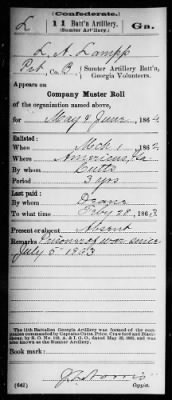 (Confederate.)
L 11 Batt'n Artillery. Ga.
(Sumter Artillery.)
L. A. Lampp
Pvt, Co. B, Sumter Artillery Batt'n,
Georgia Volunteers.
Appears on
Company Muster Roll
of the organization named above,
for May & June, 1864
Enlisted:
When Mch 1, 1862
Where Americus, Ga
By whom Cutts
Period 3 yrs
Last paid:
By whom Drane
To what time Feby 28, 1863
Present or absent Absent
Remarks: Prisoner of war since
July 5 1863
The 11th Battalion Georgia Artillery was formed of the companies commanded by Captains Cutts, Price, Crawford and Blackshear,
and was also
known as the Sumter Artillery.
Book mark:
(642) Copyist.